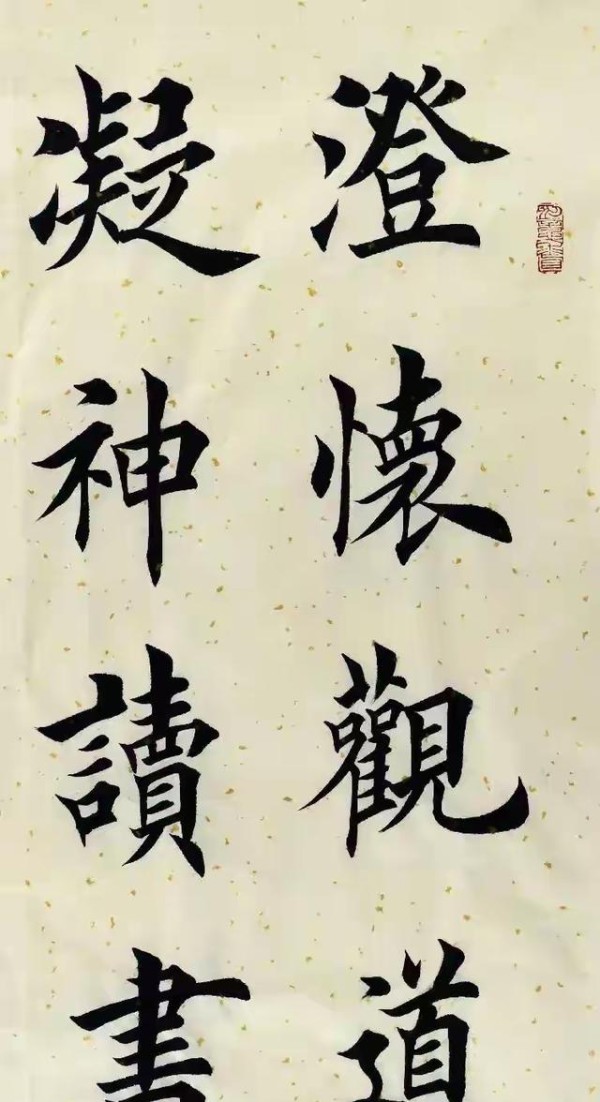 澄懷觀道
凝神讀書